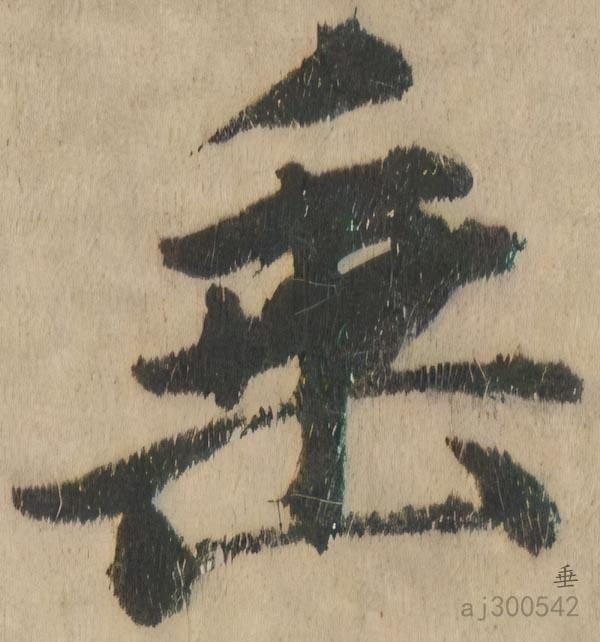 垂
垂
aj300542